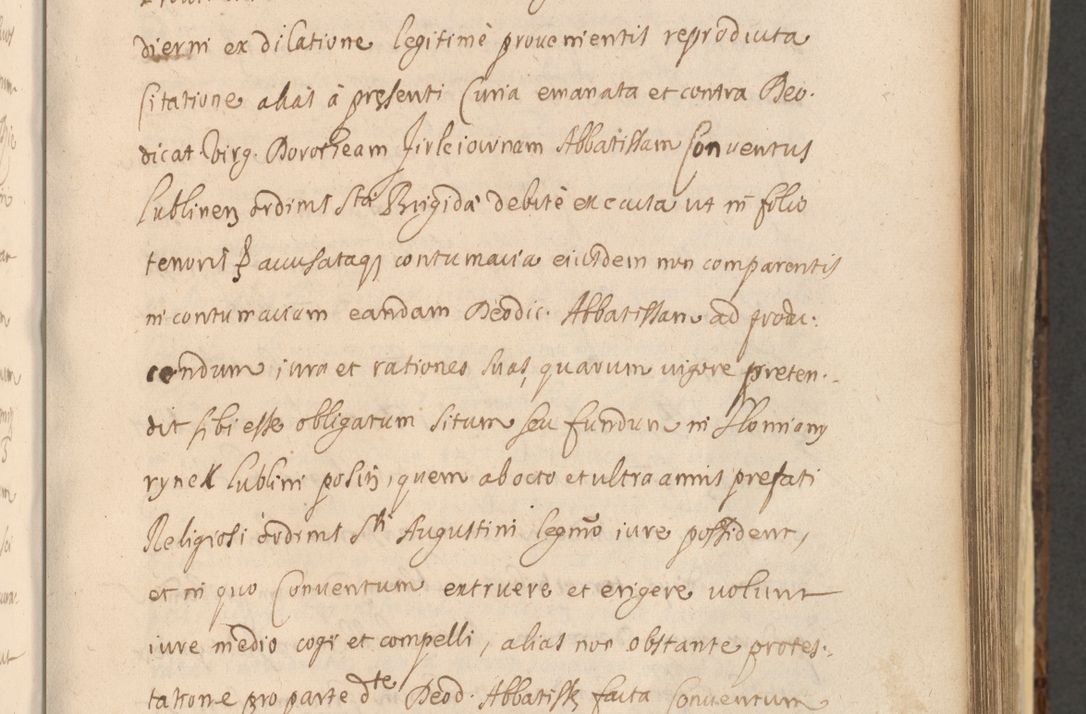 dierni ex dilatione legitimè prouenientis reproducta
citatione alias à pręsenti Curia emanata et contra Deo-
dicat. Virg. Dorotheam Abbatissam Conuentus
Lublinen ordinis Sta Brigidæ debitè executa ut in folio
tenoris accusataq contumacia eiusdem non comparentis
in contumaciam eandam Deodic. Abbatissam ad produ-
cendum iura et rationes suas, quarum uigore preten-
dit sibi esse obligatum situm seu fundum in Słomiany
rynek Lublini positū, quem ab octo et ultra annis prefati
Religiosi ordinis Sti Augustini legmō iure possident,
et in quo Conuentum extruere et erigere uolunt
iure medio cogi et compelli, alias non obstante protes-
tatione pro parte dte Deod. Abbatissę facta Conuentum